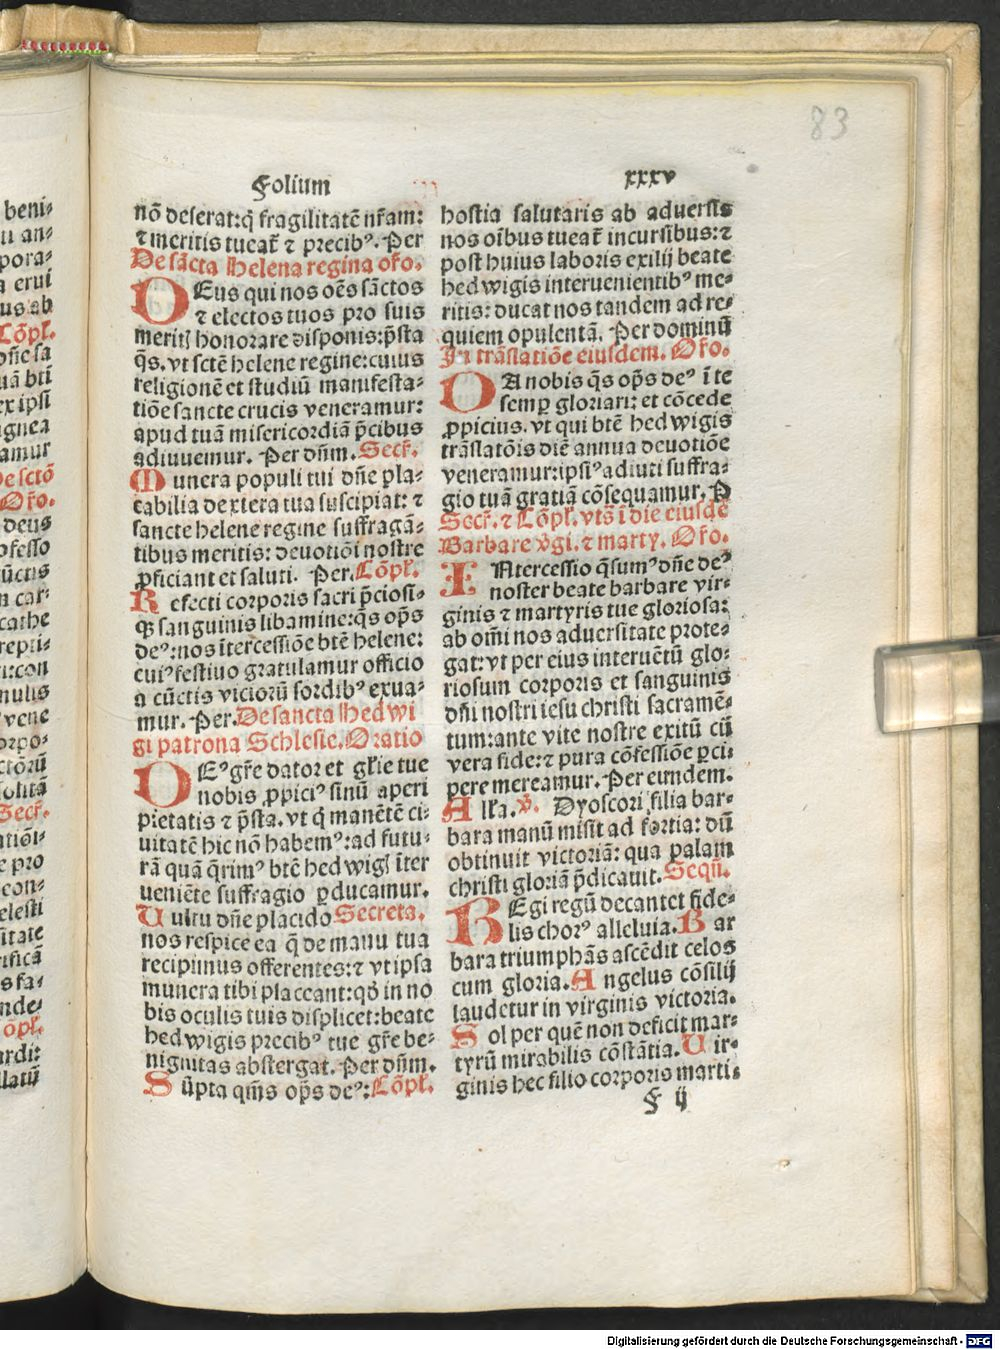 83
Folium xxxv
nō deserat:q̄ fragilitatē nr̄am:
⁊ meritis tueat̄ ⁊ precib⁹. Per
De sācta Helena regina or̄o.
DEus qui nos oēs sāctos
⁊ electos tuos pro suis
meritꝭ honorare disponis:p̄sta
q̄s. vt sctē helene regine:cuius
religionē et studiū manifesta⸗
tiōe sancte crucis veneramur:
apud tuā misericordiā p̄cibus
adiuuemur. Per dn̄m. Secr̄.
Munera populi tui dn̄e pla⸗
cabilia dextera tua suscipiat: ⁊
sancte helene regine suffragā⸗
tibus meritis: deuotiōi nostre
ꝓficiant et saluti. Per. Cōpl̄.
Refecti corporis sacri p̄ciosi⸗
qꝫ sanguinis libamine:qs op̄s
de⁹:nos ītercessiōe btē helene:
cui⁹ festiuo gratulamur officio
a cūctis viciorū sordib⁹ exua⸗
mur. Per. De sancta Hedwi
gi patrona Schlesie. Oratio
DE⁹ gr̄e dator et gl̄ie tue
nobis ꝓpici⁹ sinū aperi
pietatis ⁊ p̄sta. vt q̄ manētē ci⸗
uitatē hic nō habem⁹:ad futu⸗
rā quā q̄rim⁹ btē hedwigꝭ īter
ueniēte suffragio ꝑducamur.
Uultu dn̄e placido Secreta.
nos respice ea q̄ de manu tua
recipimus offerentes:⁊ vt ipsa
munera tibi placeant:qd̄ in no
bis oculis tuis displicet:beate
hedwigis precib⁹ tue gr̄e be⸗
nignitas abstergat. Per dn̄m.
Sūpta qm̄s op̄s de⁹: Cōpl̄.
hostia salutaris ab aduersis
nos oībus tueat̄ incursibus:⁊
post huius laboris exilij beate
hedwigis interuenientib⁹ me⸗
ritis: ducat nos tandem ad re⸗
quiem opulentā. Per dominū
In trāslatiōe eiusdem. Or̄o.
DA nobis q̄s op̄s de⁹ ī te
semꝑ gloriari: et cōcede
ꝓpicius. vt qui btē hedwigis
trāslatōis diē annua deuotiōe
veneramur:ipsi⁹ adiuti suffra⸗
gio tuā gratiā cōsequamur. P
Secr̄. ⁊ Cōpl̄. vts̄ ī die eiusdē
Barbare v̄gi. ⁊ marty. Or̄o.
INtercessio q̄sum⁹ dn̄e de⁹
noster beate barbare vir⸗
ginis ⁊ martyris tue gloriosa:
ab om̄i nos aduersitate prote⸗
gat:vt per eius interuētū glo⸗
riosum corporis et sanguinis
dn̄i nostri iesu christi sacramē⸗
tum:ante vite nostre exitū cū
vera fide:⁊ pura cōfessiōe ꝑci⸗
pere mereamur. Per eundem.
All'a. v̄. Dyoscori filia bar⸗
bara manū misit ad fortia: dū
obtinuit victoriā: qua palam
christi gloriā p̄dicauit. Sequē.
REgi regū decantet fide⸗
lis chor⁹ alleluia. Bar
bara triumphās ascēdit celos
cum gloria. Angelus cōsilij
laudetur in virginis victoria.
Sol per quē non deficit mar⸗
tyrū mirabilis cōstātia. Uir⸗
ginis hec filio corporis marti⸗
F ij
Digitalisierung gefördert durch die Deutsche Forschungsgemeinschaft - DFG